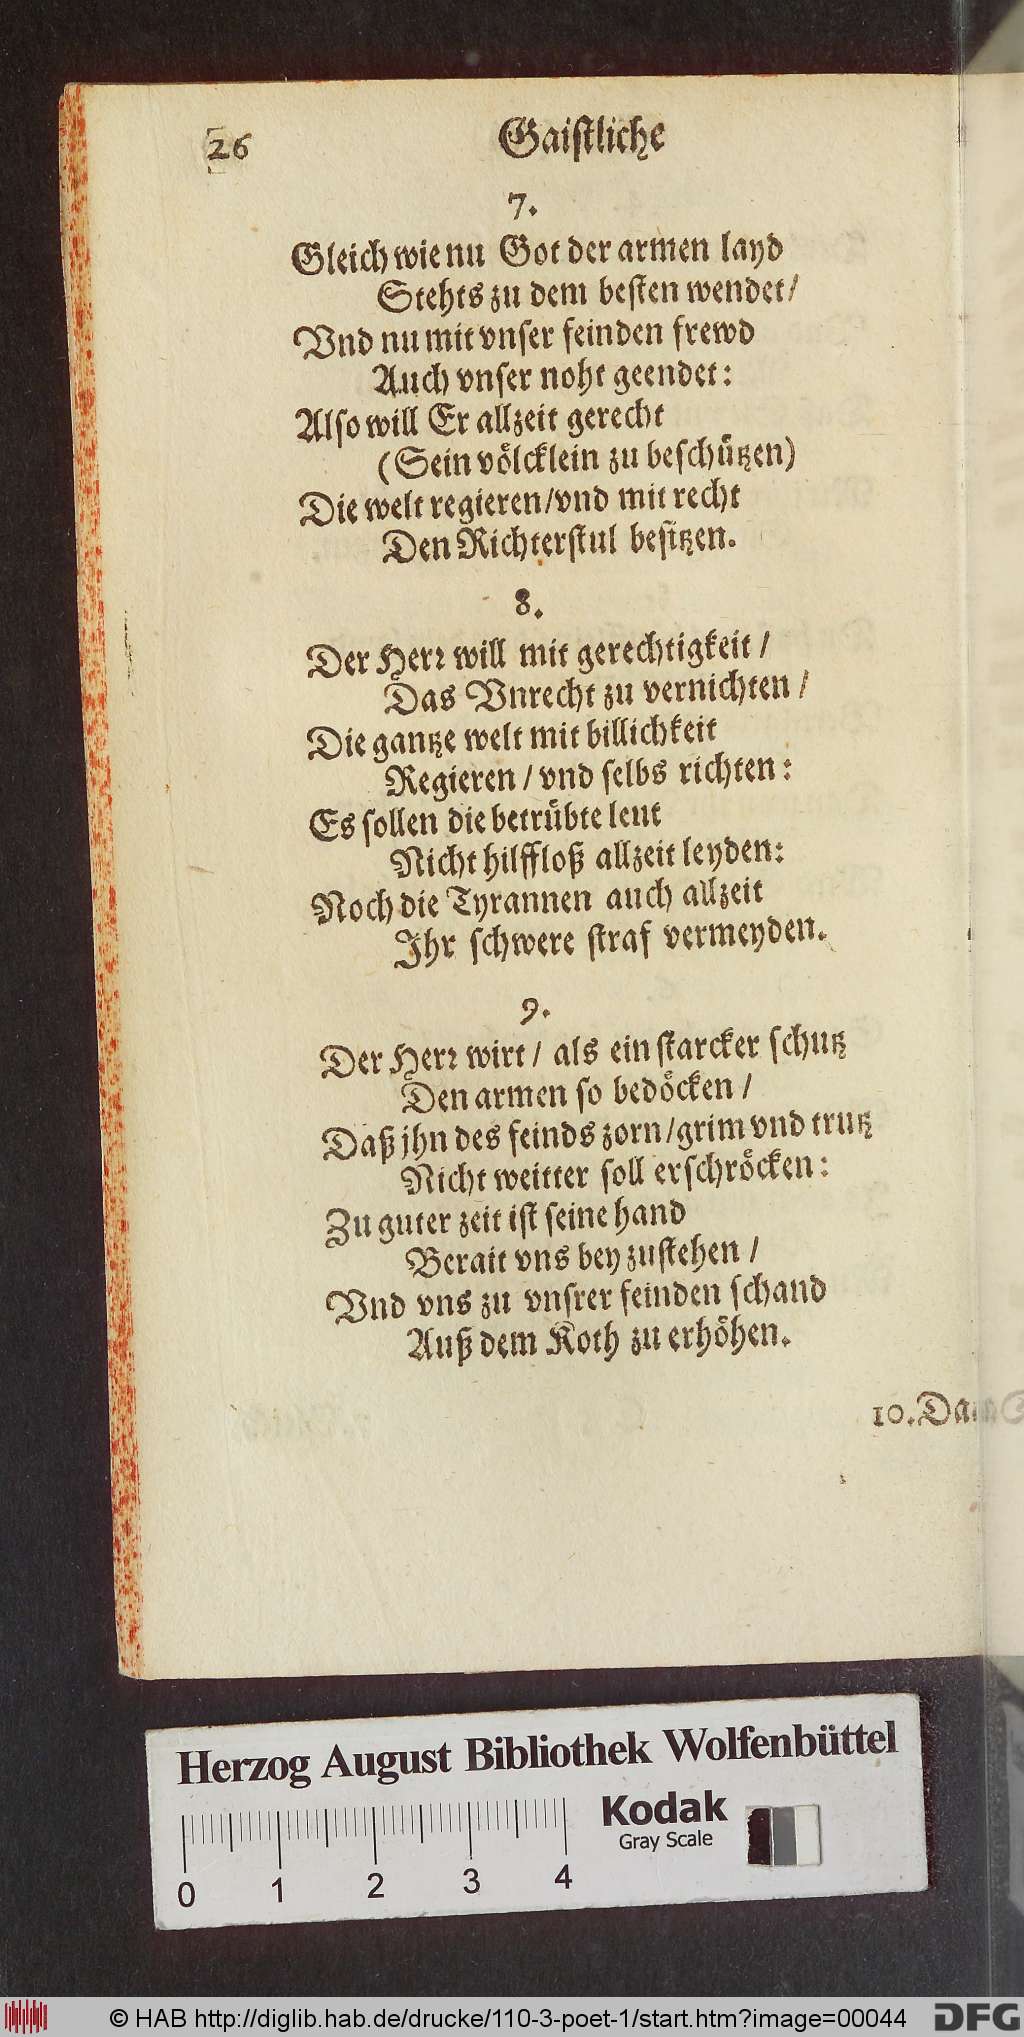 26 Gaistliche
7.
Gleich wie nu Got der armen layd
Stehts zu dem besten wendet/
Vnd nu mit vnser feinden frewd
Auch vnser noht geendet:
Also will Er allzeit gerecht
(Sein völcklein zu beschützen)
Die welt regieren/vnd mit recht
Den Richterstul besitzen.
8.
Der Herr will mit gerechtigkeit /
Das Vnrecht zu vernichten /
Die gantze welt mit billichkeit
Regieren / vnd selbs richten:
Es sollen die betrübte leut
Nicht hilffloß allzeit leyden:
Noch die Tyrannen auch allzeit
Ihr schwere straf vermeyden.
9.
Der Herr wirt / als ein starcker schutz
Den armen so bedöcken /
Daß jhn des feinds zorn/grim vnd trutz
Nicht weitter soll erschröcken:
Zu guter zeit ist seine hand
Berait vns bey zustehen /
Vnd vns zu vnsrer feinden schand
Auß dem Koth zu erhöhen.
10.
Herzog August Bibliothek Wolfenbüttel
Kodak
Gray Scale
0 1 2 3 4
© HAB http://diglib.hab.de/drucke/110-3-poet-1/start.htm?image=00044 DFG